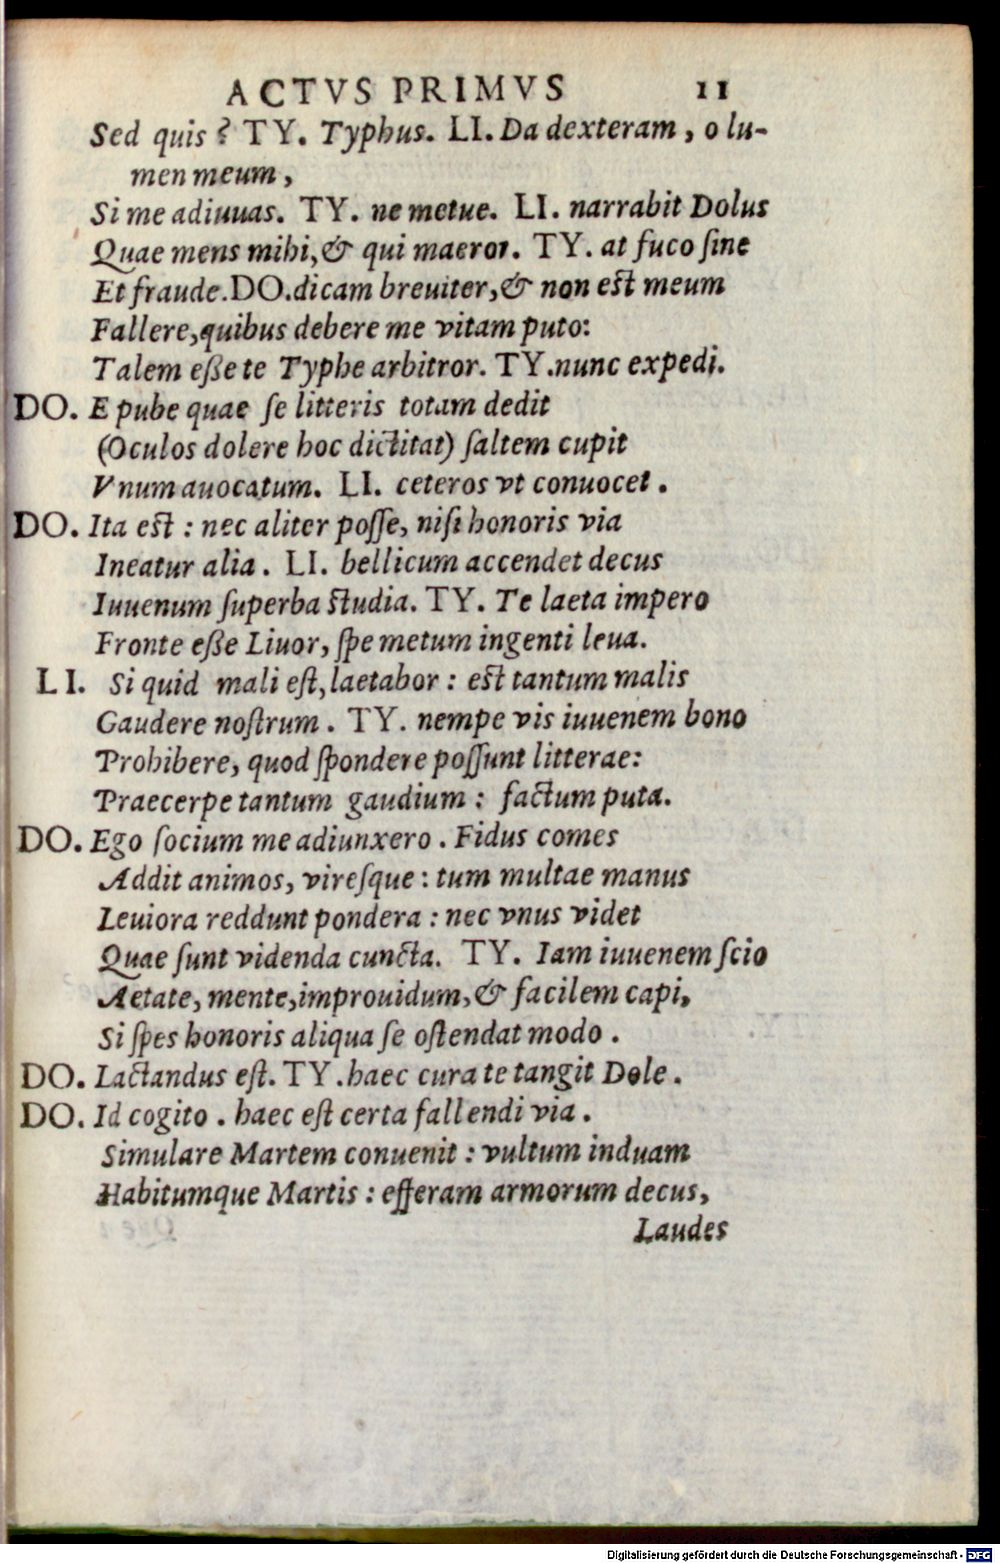 ACTVS PRIMVS 11
Sed quis? TY. Typhus. LI. Da dexteram, o lu-
men meum,
Si me adiuuas. TY. ne metue. LI. narrabit Dolus
Quae mens mihi, & qui maeror. TY. at fuco ſine
Et fraude. DO. dicam breuiter, & non est meum
Fallere, quibus debere me vitam puto:
Talem eße te Typhe arbitror. TY. nunc expedi.
DO. E pube quae ſe litteris totam dedit
(Oculos dolere hoc dictitat) ſaltem cupit
Vnum auocatum. LI. ceteros vt conuocet.
DO. Ita est: nec aliter poſſe, niſi honoris via
Ineatur alia. LI. bellicum accendet decus
Iuuenum ſuperba studia. TY. Te laeta impero
Fronte eße Liuor, ſpe metum ingenti leua.
LI. Si quid mali eſt, laetabor: est tantum malis
Gaudere noſtrum. TY. nempe vis iuuenem bono
Prohibere, quod ſpondere poſſunt litterae:
Praecerpe tantum gaudium: factum puta.
DO. Ego ſocium me adiunxero. Fidus comes
Addit animos, vireſque: tum multae manus
Leuiora reddunt pondera: nec vnus videt
Quae ſunt videnda cuncta. TY. Iam iuuenem ſcio
Aetate, mente, improuidum, & facilem capi,
Si ſpes honoris aliqua ſe oſtendat modo.
DO. Lactandus eſt. TY. haec cura te tangit Dole.
DO. Id cogito. haec eſt certa fallendi via.
Simulare Martem conuenit: vultum induam
Habitumque Martis: efferam armorum decus,
Laudes
Digitalisierung gefördert durch die Deutsche Forschungsgemeinschaft - DFG